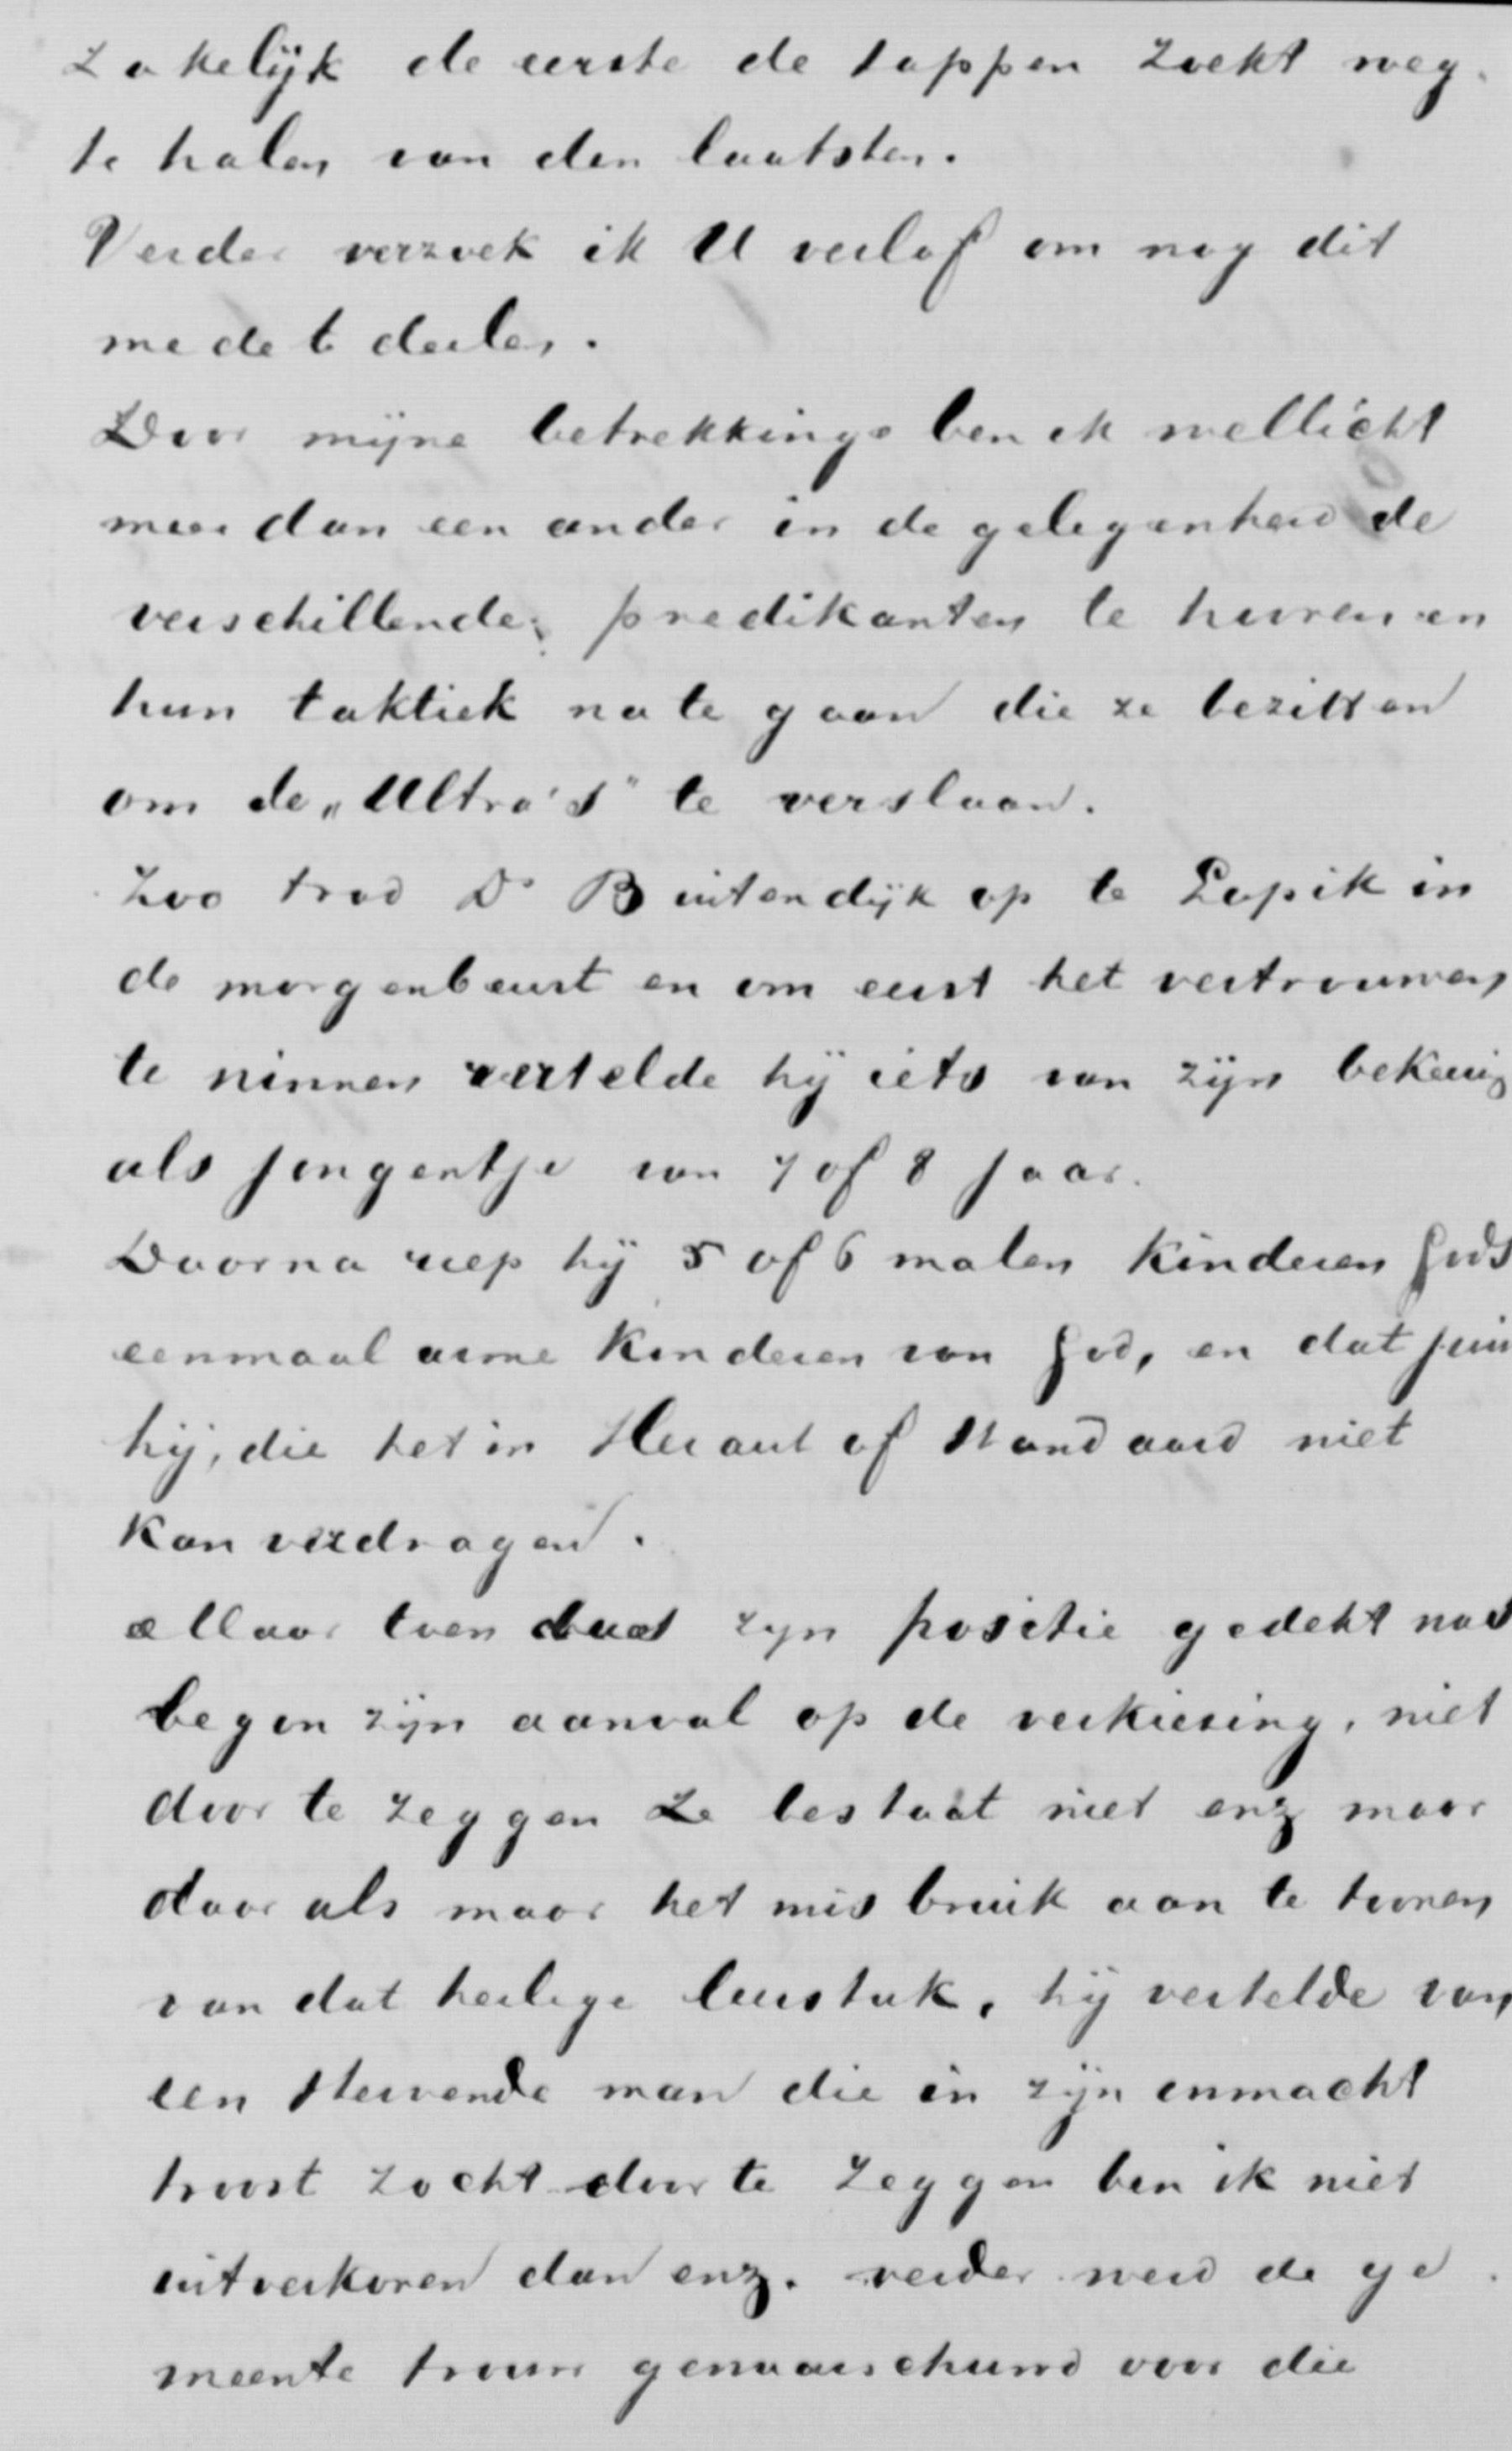 zakelijk de eerste de lappen zoekt weg
te halen van den laatsten.
Verder verzoek ik U verlof om nog dit
mede te deelen.
Door mijne betrekkinge ben ik wellicht
meer dan een ander in de gelegenheid de
verschillende predikanten te hooren en
hun taktiek na te gaan die ze bezitten
om de „Ultra's" te verslaan.
Zoo trad Ds Buitendijk op te Lopik in
de morgenbeurt en om eerst het vertrouwen
te winnen vertelde hij iets van zijn bekeering
als jongentje van 7 of 8 jaar.
Daarna riep hij 5 of 6 malen kinderen Gods
eenmaal arme kinderen van God, en dat juist
hij, die het in Heraut of Standaard niet
kan verdragen.
Maar toen zijn positie gedekt was
begon zijn aanval op de verkiezing, niet
door te zeggen ze bestaat niet enz maar
door als maar het misbruik aan te toonen
van dat heilige leerstuk, hij vertelde van
een stervende man die in zijn onmacht
troost zocht door te zeggen ben ik niet
uitverkoren dan enz. verder werd de ge
meente trouw gewaarschuwd voor die